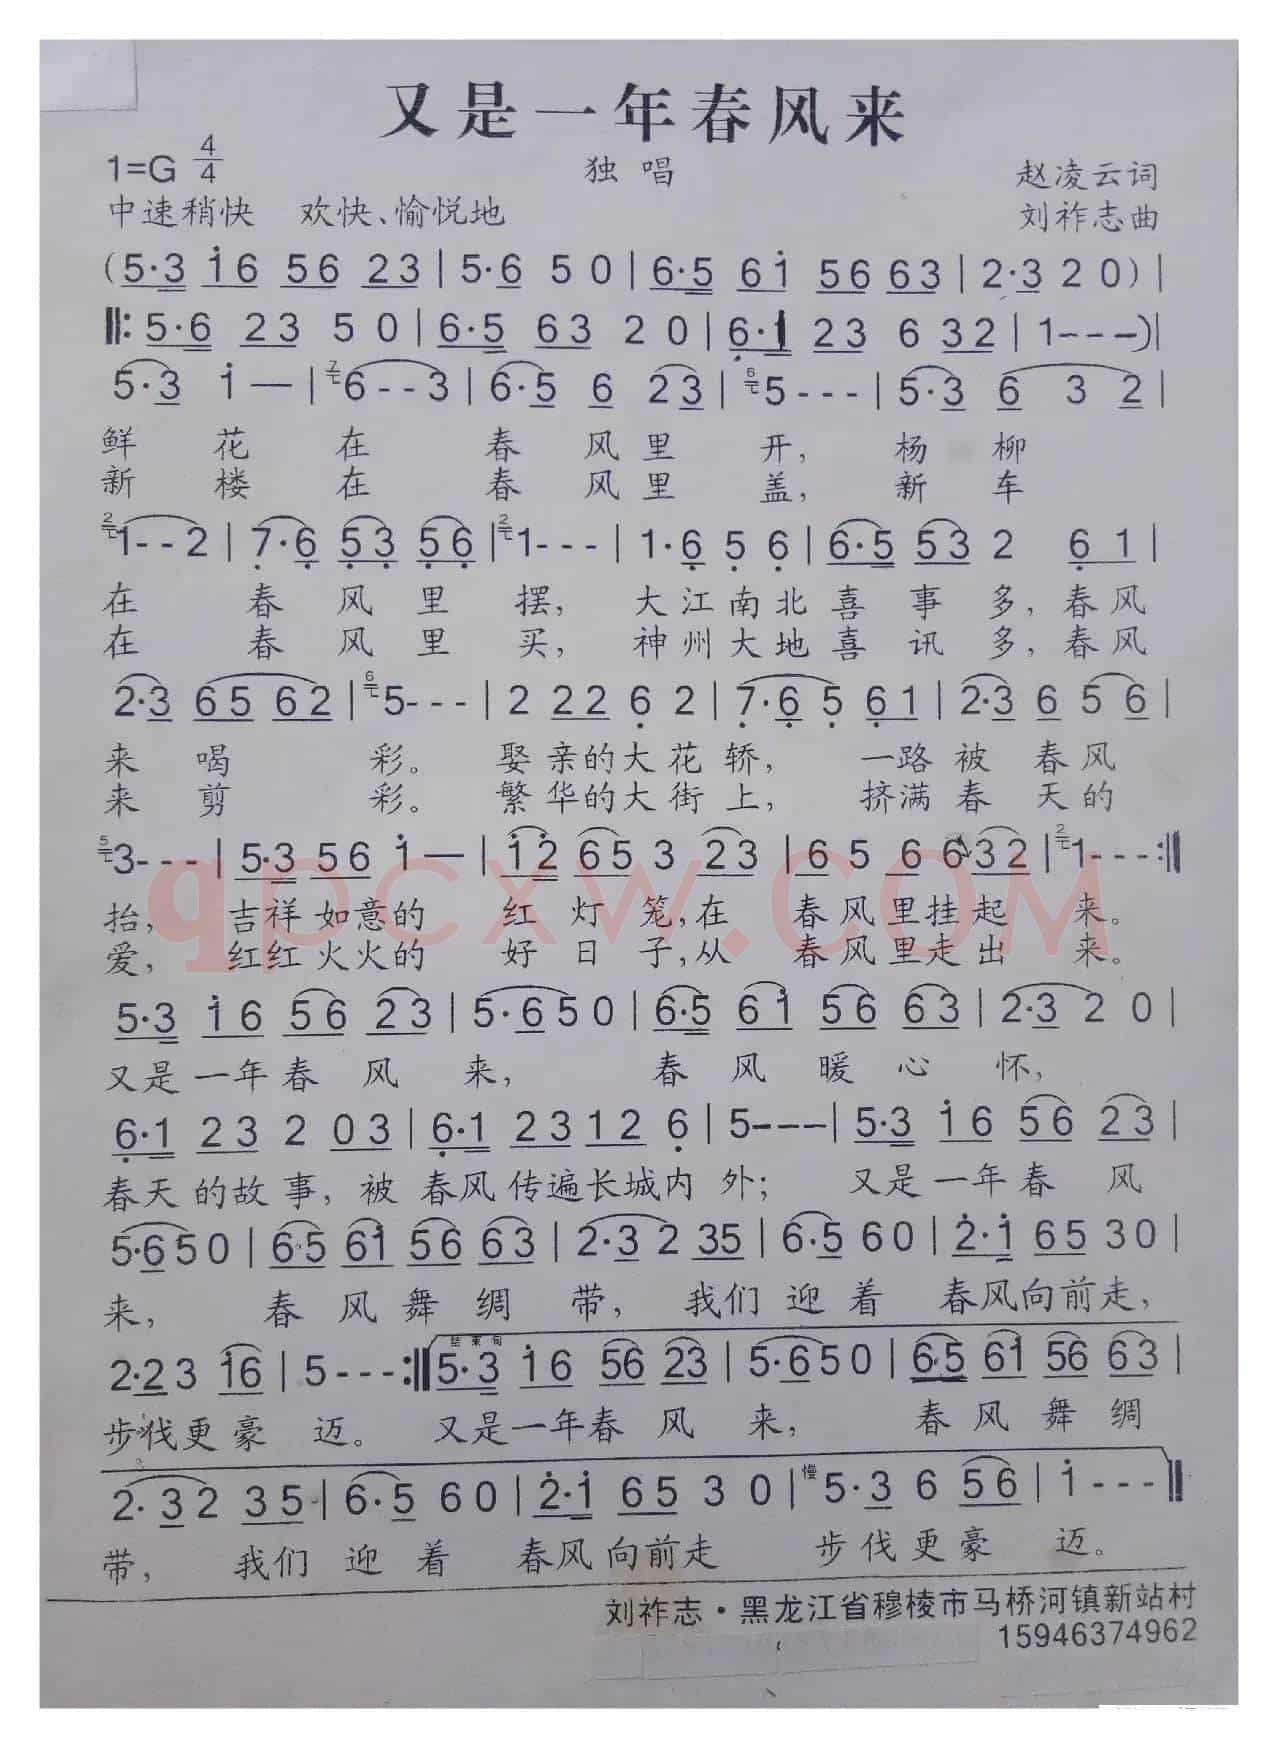 又是一年春风来
1=G 4/4
独 唱
赵凌云词
中速稍快 欢快、愉悦地
刘祚志曲
(5·3 i6 56 23|5·6 5 0|6·5 6i 56 63|2·3 2 0)|
‖:5·6 23 5 0|6·5 63 2 0|6·1 23 6 32|1---)|
5·3 i —|6--3|6·5 6 23|5---|5·3 6 3 2|
鲜 花 在 春 风 里 开, 杨 柳
新 楼 在 春 风 里 盖, 新 车
1--2|7·6 53 56|1---|1·6 5 6|6·5 53 2 61|
在 春 风 里 摆, 大江南北喜 事 多,春风
在 春 风 里 买, 神州大地喜 讯 多,春风
2·3 65 62|5---|2 22 6 2|7·6 5 61|2·3 6 5 6|
来 喝 彩。 娶 亲的大花轿, 一路被 春风
来 剪 彩。 繁 华的大街上, 挤满春 天的
3---|5·3 56 i—|i2 65 3 23|65 6 6 32|1---:‖
抬, 吉祥如意的 红 灯 笼,在 春风里挂起 来。
爱, 红红火火的 好 日 子,从 春风里走出 来。
qpcxw.COM
5·3 i6 56 23|5·650|6·5 6i 56 63|2·3 2 0|
又是一年春 风 来, 春 风 暖 心 怀,
6·1 23 2 03|6·1 23 12 6|5---|5·3 i6 56 23|
春天的故事, 被 春风传遍长城内 外; 又是一年春 风
5·650|6·5 6i 56 63|2·3 2 35|6·5 60|2·i 65 30|
来, 春 风 舞 绸 带, 我们 迎 着 春风向前走,
结束句
2·23 i6|5---:‖5·3 i6 56 23|5·650|6·5 6i 56 63|
步伐更豪 迈。 又是一年春 风 来, 春 风 舞 绸
2·32 35|6·5 60|2·i 65 3 0|慢5·3 6 56|i---‖
带, 我们 迎 着 春风向前走 步伐更豪 迈。
刘祚志·黑龙江省穆棱市马桥河镇新站村
15946374962